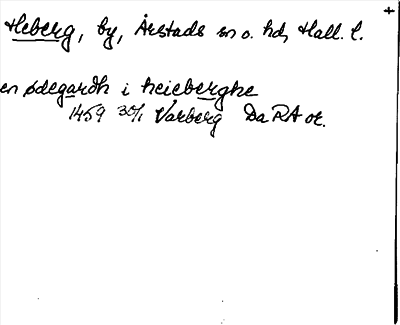 Heberg, by, Årstads sn o. hd, Hall. l.
en ødegardh i heieberghe
1459 30/1 Varberg DaRA or.